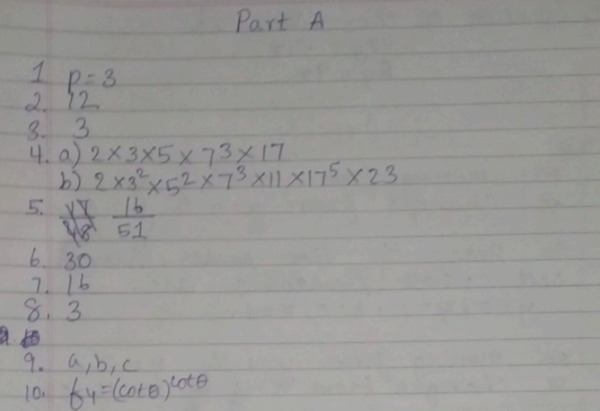 Part A
1 p = 3
2. 12
3. 3
4. a) 2×3×5×7³×17
b) 2×3²×5²×7³×11×17⁵×23
5. 16/51
6. 30
7. 16
8. 3
9. a, b, c
10. t₄=(cotθ)^cotθ